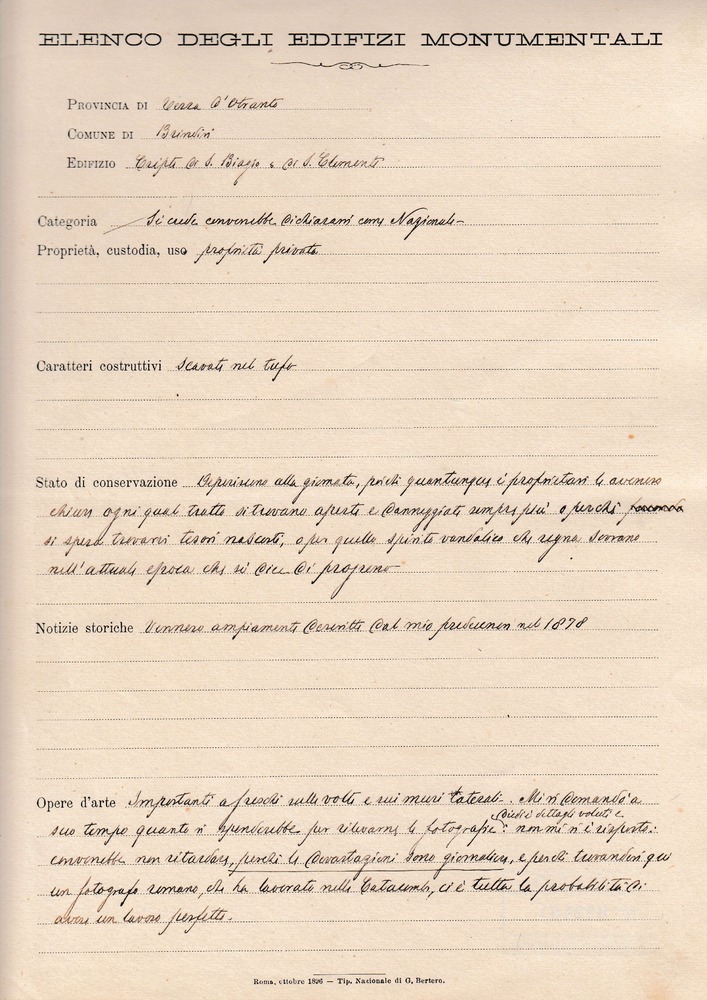 ELENCO DEGLI EDIFIZI MONUMENTALI
PROVINCIA DI Terra d'Otranto
COMUNE DI Brindisi
EDIFIZIO Cripte di S. Biagio e di S. Clemente
Categoria Si crede converrebbe dichiararsi come Nazionale
Proprietà, custodia, uso proprietà privata
Caratteri costruttivi scavate nel tufo
Stato di conservazione Deperiscono alla giornata, poichè quantunque i proprietari le avessero
chiuse ogni qual tratto si trovano aperte e danneggiate sempre più o perchè
si spera trovarvi tesori nascosti, o per quello spirito vandalico che regna sovrano
nell'attuale epoca che si dice di progresso
Notizie storiche Vennero ampiamente descritte dal mio predecessore nel 1878
Opere d'arte Importanti affreschi sulle volte e sui muri laterali. Mi si domandò a
suo tempo quanto si spenderebbe per rilevarne le fotografie: diedi i dettagli voluti e non mi si è risposto:
converrebbe non ritardare, perchè le devastazioni sono giornaliere, e perchè trovandosi qui
un fotografo romano, che ha lavorato nelle Catacombe, ci è tutta la probabilità di
avere un lavoro perfetto.
Roma, ottobre 1896 — Tip. Nazionale di G. Bertero.